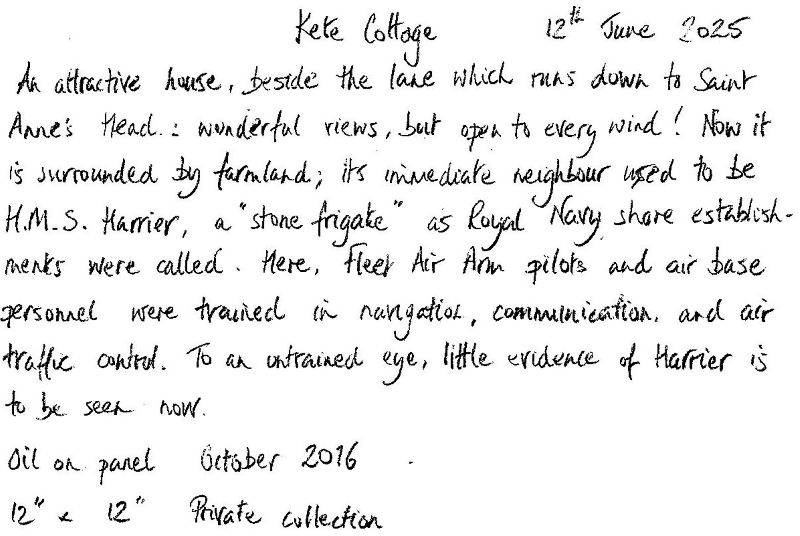 Kete Cottage 12th June 2025
An attractive house, beside the lane which runs down to Saint
Anne's Head.: wonderful views, but open to every wind! Now it
is surrounded by farmland; its immediate neighbour used to be
H.M.S. Harrier, a "stone frigate" as Royal Navy shore establish-
ments were called. Here, Fleet Air Arm pilots and air base
personnel were trained in navigation, communication, and air
traffic control. To an untrained eye, little evidence of Harrier is
to be seen now.
Oil on panel October 2016
12" x 12" Private collection